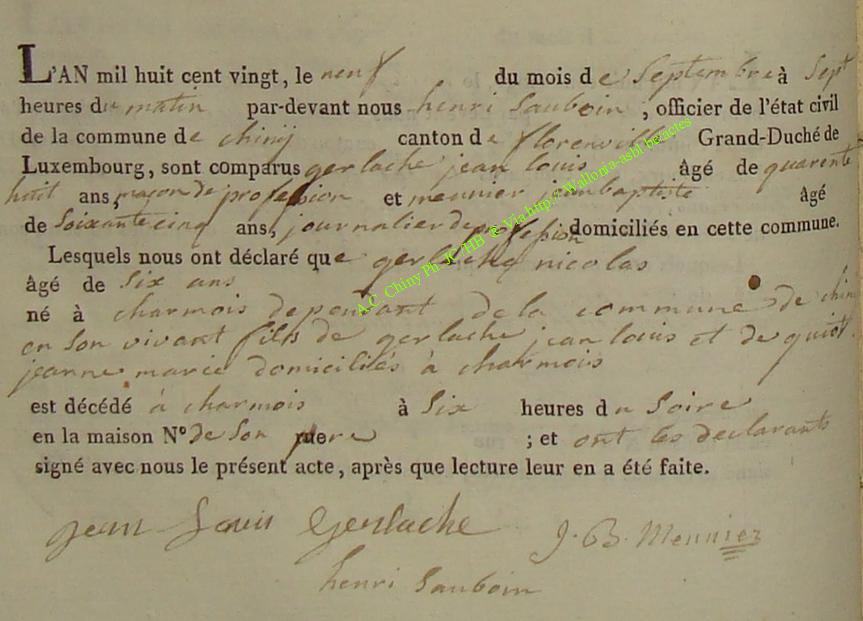 L'AN mil huit cent vingt, le neuf du mois de Septembre à Sept
heures du matin par-devant nous henri Sauboin, officier de l'état civil
de la commune de chinij canton de florenville Grand-Duché de
Luxembourg, sont comparus gerlache jean louis âgé de quarente
huit ans, maçon de profession et meunier jean baptiste âgé
de Soixante cinq ans, journalier de profession domiciliés en cette commune.
Lesquels nous ont déclaré que gerlache nicolas
âgé de Six ans
né à charmois dependant de la commune de chini
en Son vivant fils de gerlache jean louis et de quiot
jeanne marie domiciliés à charmois
est décédé à charmois à Six heures du Soire
en la maison N° de Son pere ; et ont les declarants
signé avec nous le présent acte, après que lecture leur en a été faite.
jean Louis Gerlache J. B. Meunier
henri Sauboin
A.C. Chiny Ph. K. HB @ Via http://wallonia-asbl.be/actes